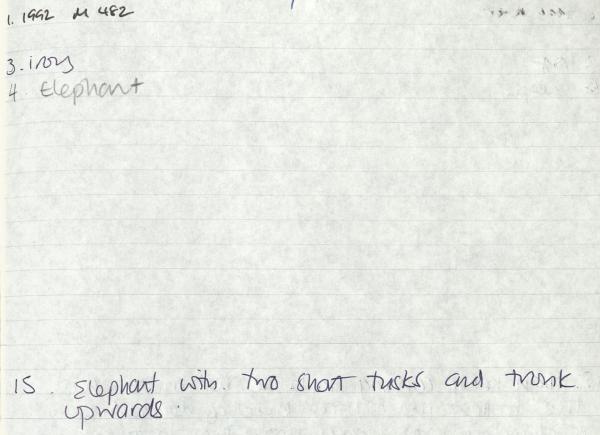 1. 1992 M 482
3. irons
4 Elephant
15. Elephant with two short tusks and trunk
upwards.